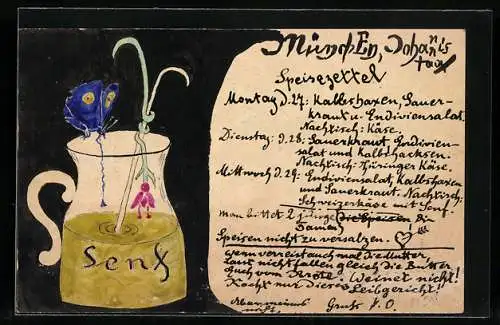 Senf
München, Johannis
tag
Speisezettel
Montag d. 27: Kalbshaxen, Sauer-
kraut u. Endiviensalat.
Nachtisch: Käse.
Dienstag d. 28: Sauerkraut, Endivien-
salat und Kalbshacksen.
Nachtisch: Thüringer Käse.
Mittwoch d. 29: Endiviensalat, Kalbshaxen
und Sauerkraut. Nachtisch:
Schweizerkäse mit Senf.
man bittet 2 junge die Speisen Die
Damen
Speisen nicht zu versalzen.
Gern verreist auch mal die Mutter,
Lasst nicht fallen gleich die Butter
Auch vom Brote. Weinet nicht!
Kocht nur Dieses Leibgericht!
nicht. Gruss